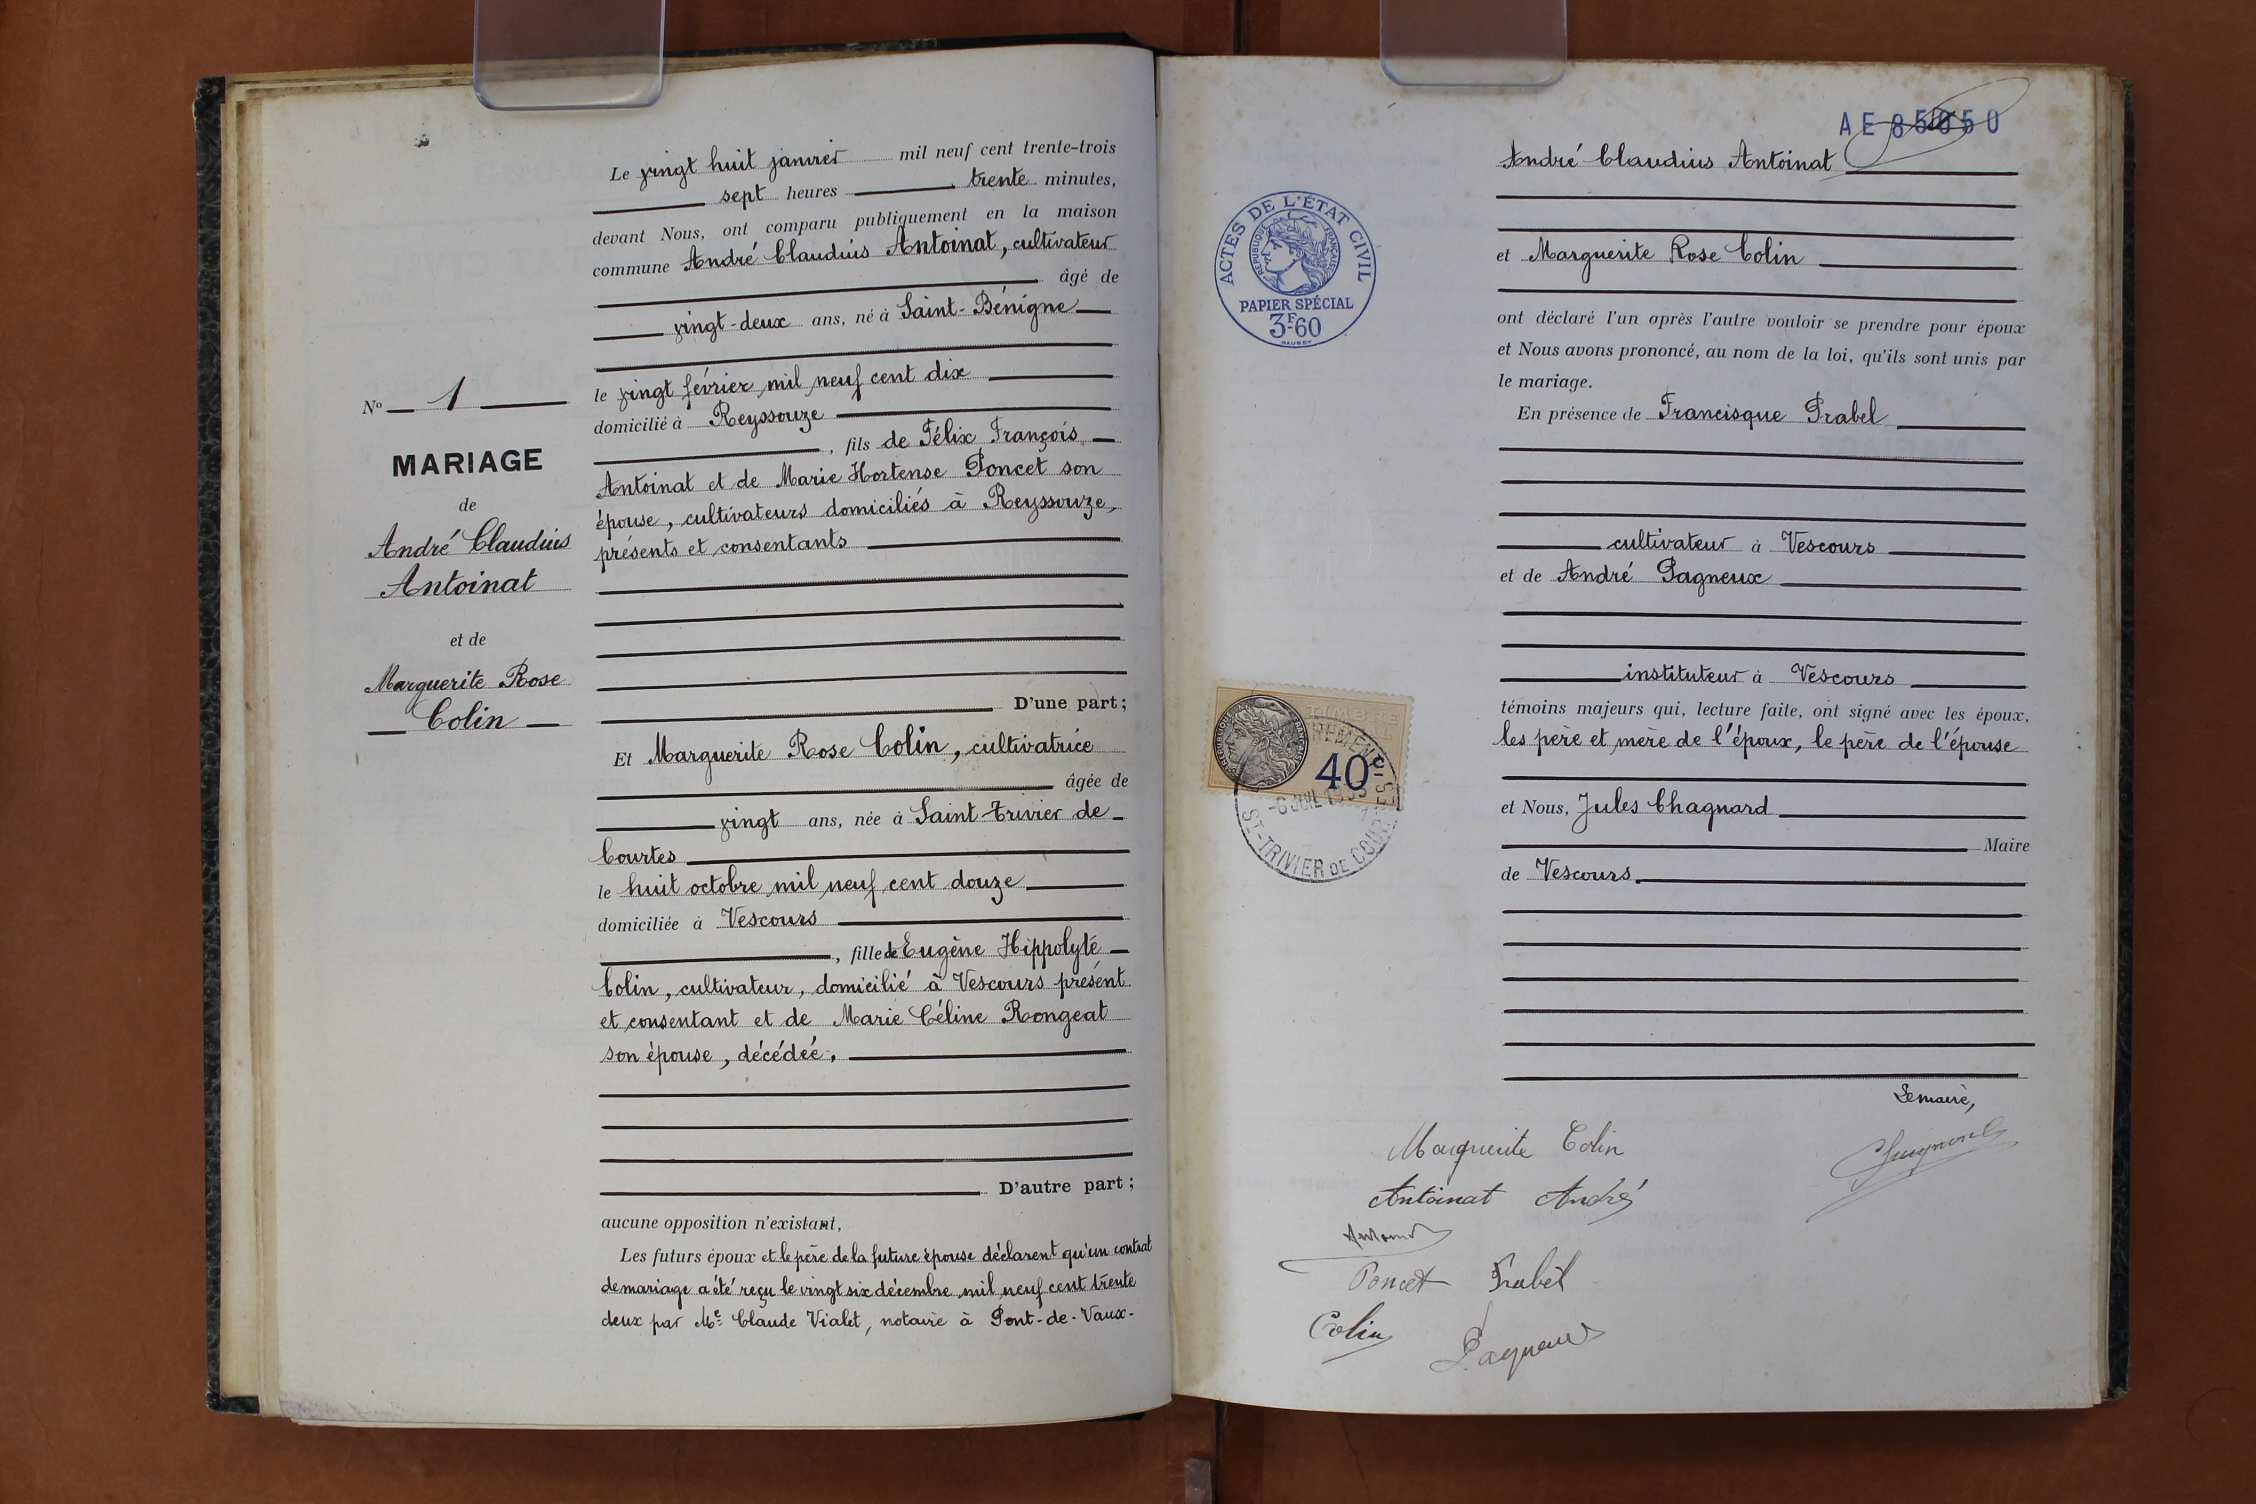 Le vingt huit janvier mil neuf cent trente-trois
sept heures trente minutes,
devant Nous, ont comparu publiquement en la maison
commune André Claudius Antoinat, cultivateur
âgé de
vingt-deux ans, né à Saint-Bénigne
le vingt février mil neuf cent dix
domicilié à Reyssouze
, fils de Félix François
Antoinat et de Marie Hortense Poncet son
épouse, cultivateurs domiciliés à Reyssouze,
présents et consentants
D'une part;
Et Marguerite Rose Colin, cultivatrice
âgée de
vingt ans, née à Saint-Trivier de
Courtes
le huit octobre mil neuf cent douze
domiciliée à Vescours
, fille de Eugène Hippolyte
Colin, cultivateur, domicilié à Vescours présent
et consentant et de Marie Céline Rongeat
son épouse, décédée.
D'autre part;
aucune opposition n'existant,
Les futurs époux et le père de la future épouse déclarent qu'un contrat
de mariage a été reçu le vingt six décembre mil neuf cent trente
deux par Me Claude Vialet, notaire à Pont-de-Vaux-
No 1
MARIAGE
de
André Claudius
Antoinat
et de
Marguerite Rose
Colin
AE 85050
André Claudius Antoinat
et Marguerite Rose Colin
ont déclaré l'un après l'autre vouloir se prendre pour époux
et Nous avons prononcé, au nom de la loi, qu'ils sont unis par
le mariage.
En présence de Francisque Prabel
cultivateur à Vescours
et de André Pagneux
instituteur à Vescours
témoins majeurs qui, lecture faite, ont signé avec les époux,
les père et mère de l'époux, le père de l'épouse
et Nous, Jules Chagnard
Maire
de Vescours.
Le maire,
Marguerite Colin
Chagnard
Antoinat André
Antoinat
Poncet Prabel
Colin
Pagneux
ACTES DE L'ÉTAT CIVIL
RÉPUBLIQUE FRANÇAISE
PAPIER SPÉCIAL
3F.60
TIMBRE
40
ST-TRIVIER DE COURTES